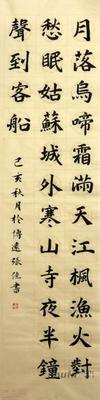 月落烏啼霜滿天江楓漁火對
愁眠姑蘇城外寒山寺夜半鐘
聲到客船
己亥秋月於博遠張書